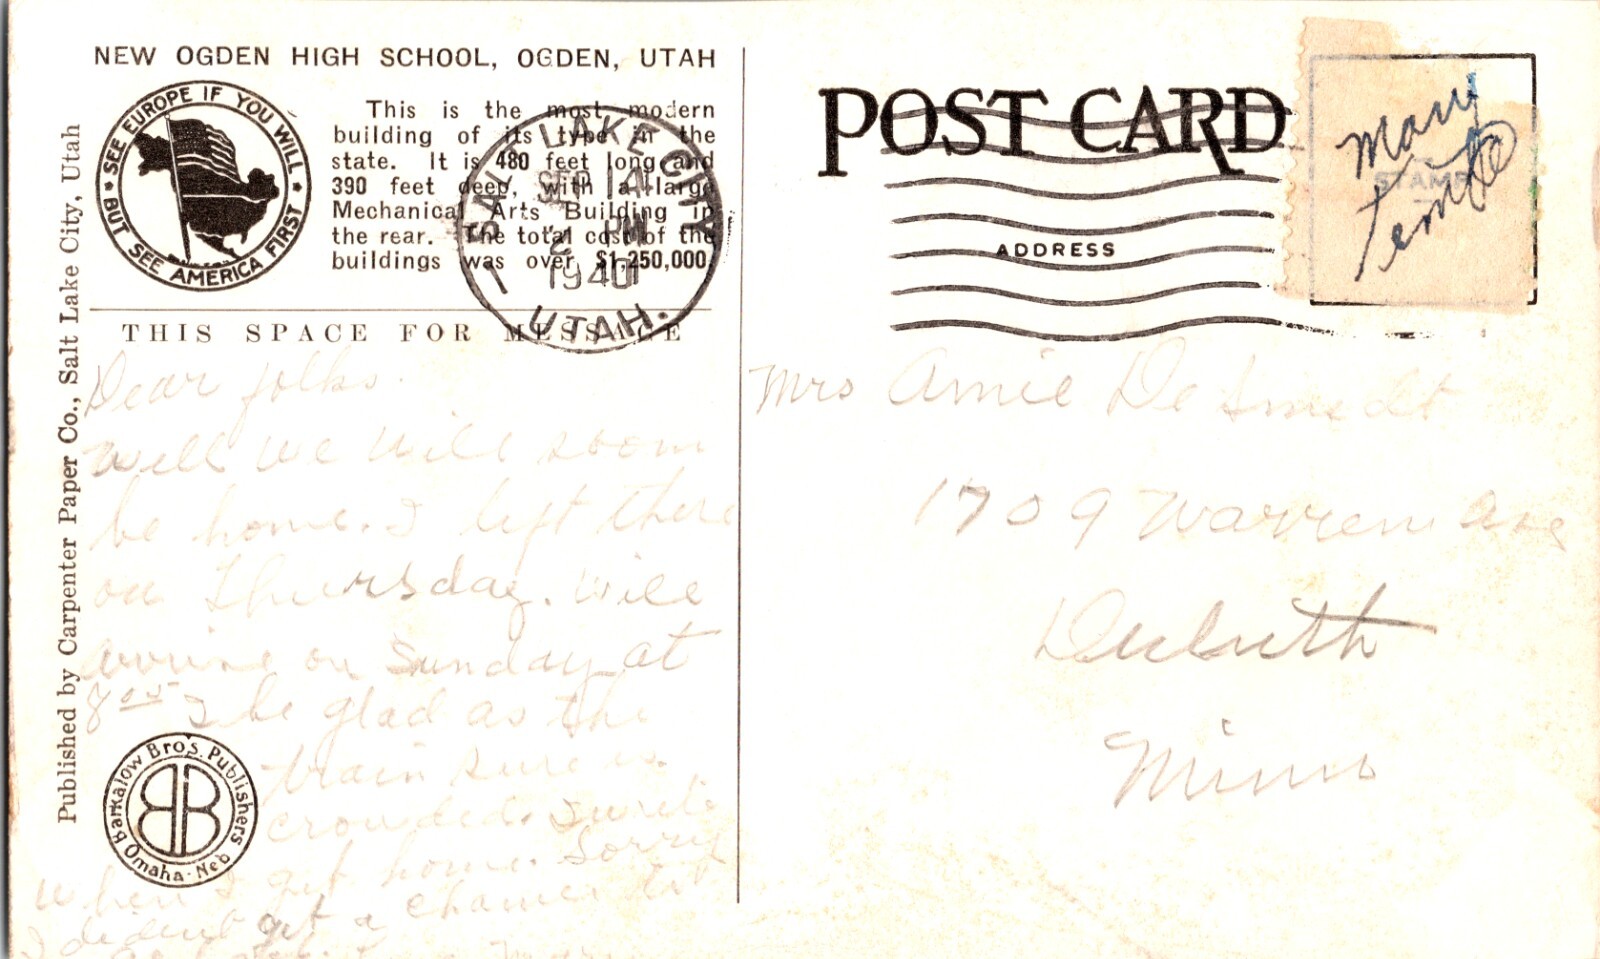 NEW OGDEN HIGH SCHOOL, OGDEN, UTAH
SEE EUROPE IF YOU WILL
• BUT SEE AMERICA FIRST •
This is the most modern
building of its type in the
state. It is 480 feet long and
390 feet deep, with a large
Mechanical Arts Building in
the rear. The total cost of the
buildings was over $1,250,000.
SALT LAKE CITY
SEP 14
PM
1940
UTAH.
THIS SPACE FOR MESSAGE
Published by Carpenter Paper Co., Salt Lake City, Utah
Dear folks.
Well we will soon
be home. I left there
on Thursday. Will
arrive on Sunday at
8 05 I be glad as the
train sure is
crowded. I write
when I get home. Sorry
I dident get a chance to
Barkalow Bros. Publishers
Omaha - Neb
BB
POST CARD
ADDRESS
STAMP
Mary
Temple
Mrs Amie De Smedt
1709 Warren Ave
Duluth
Minn